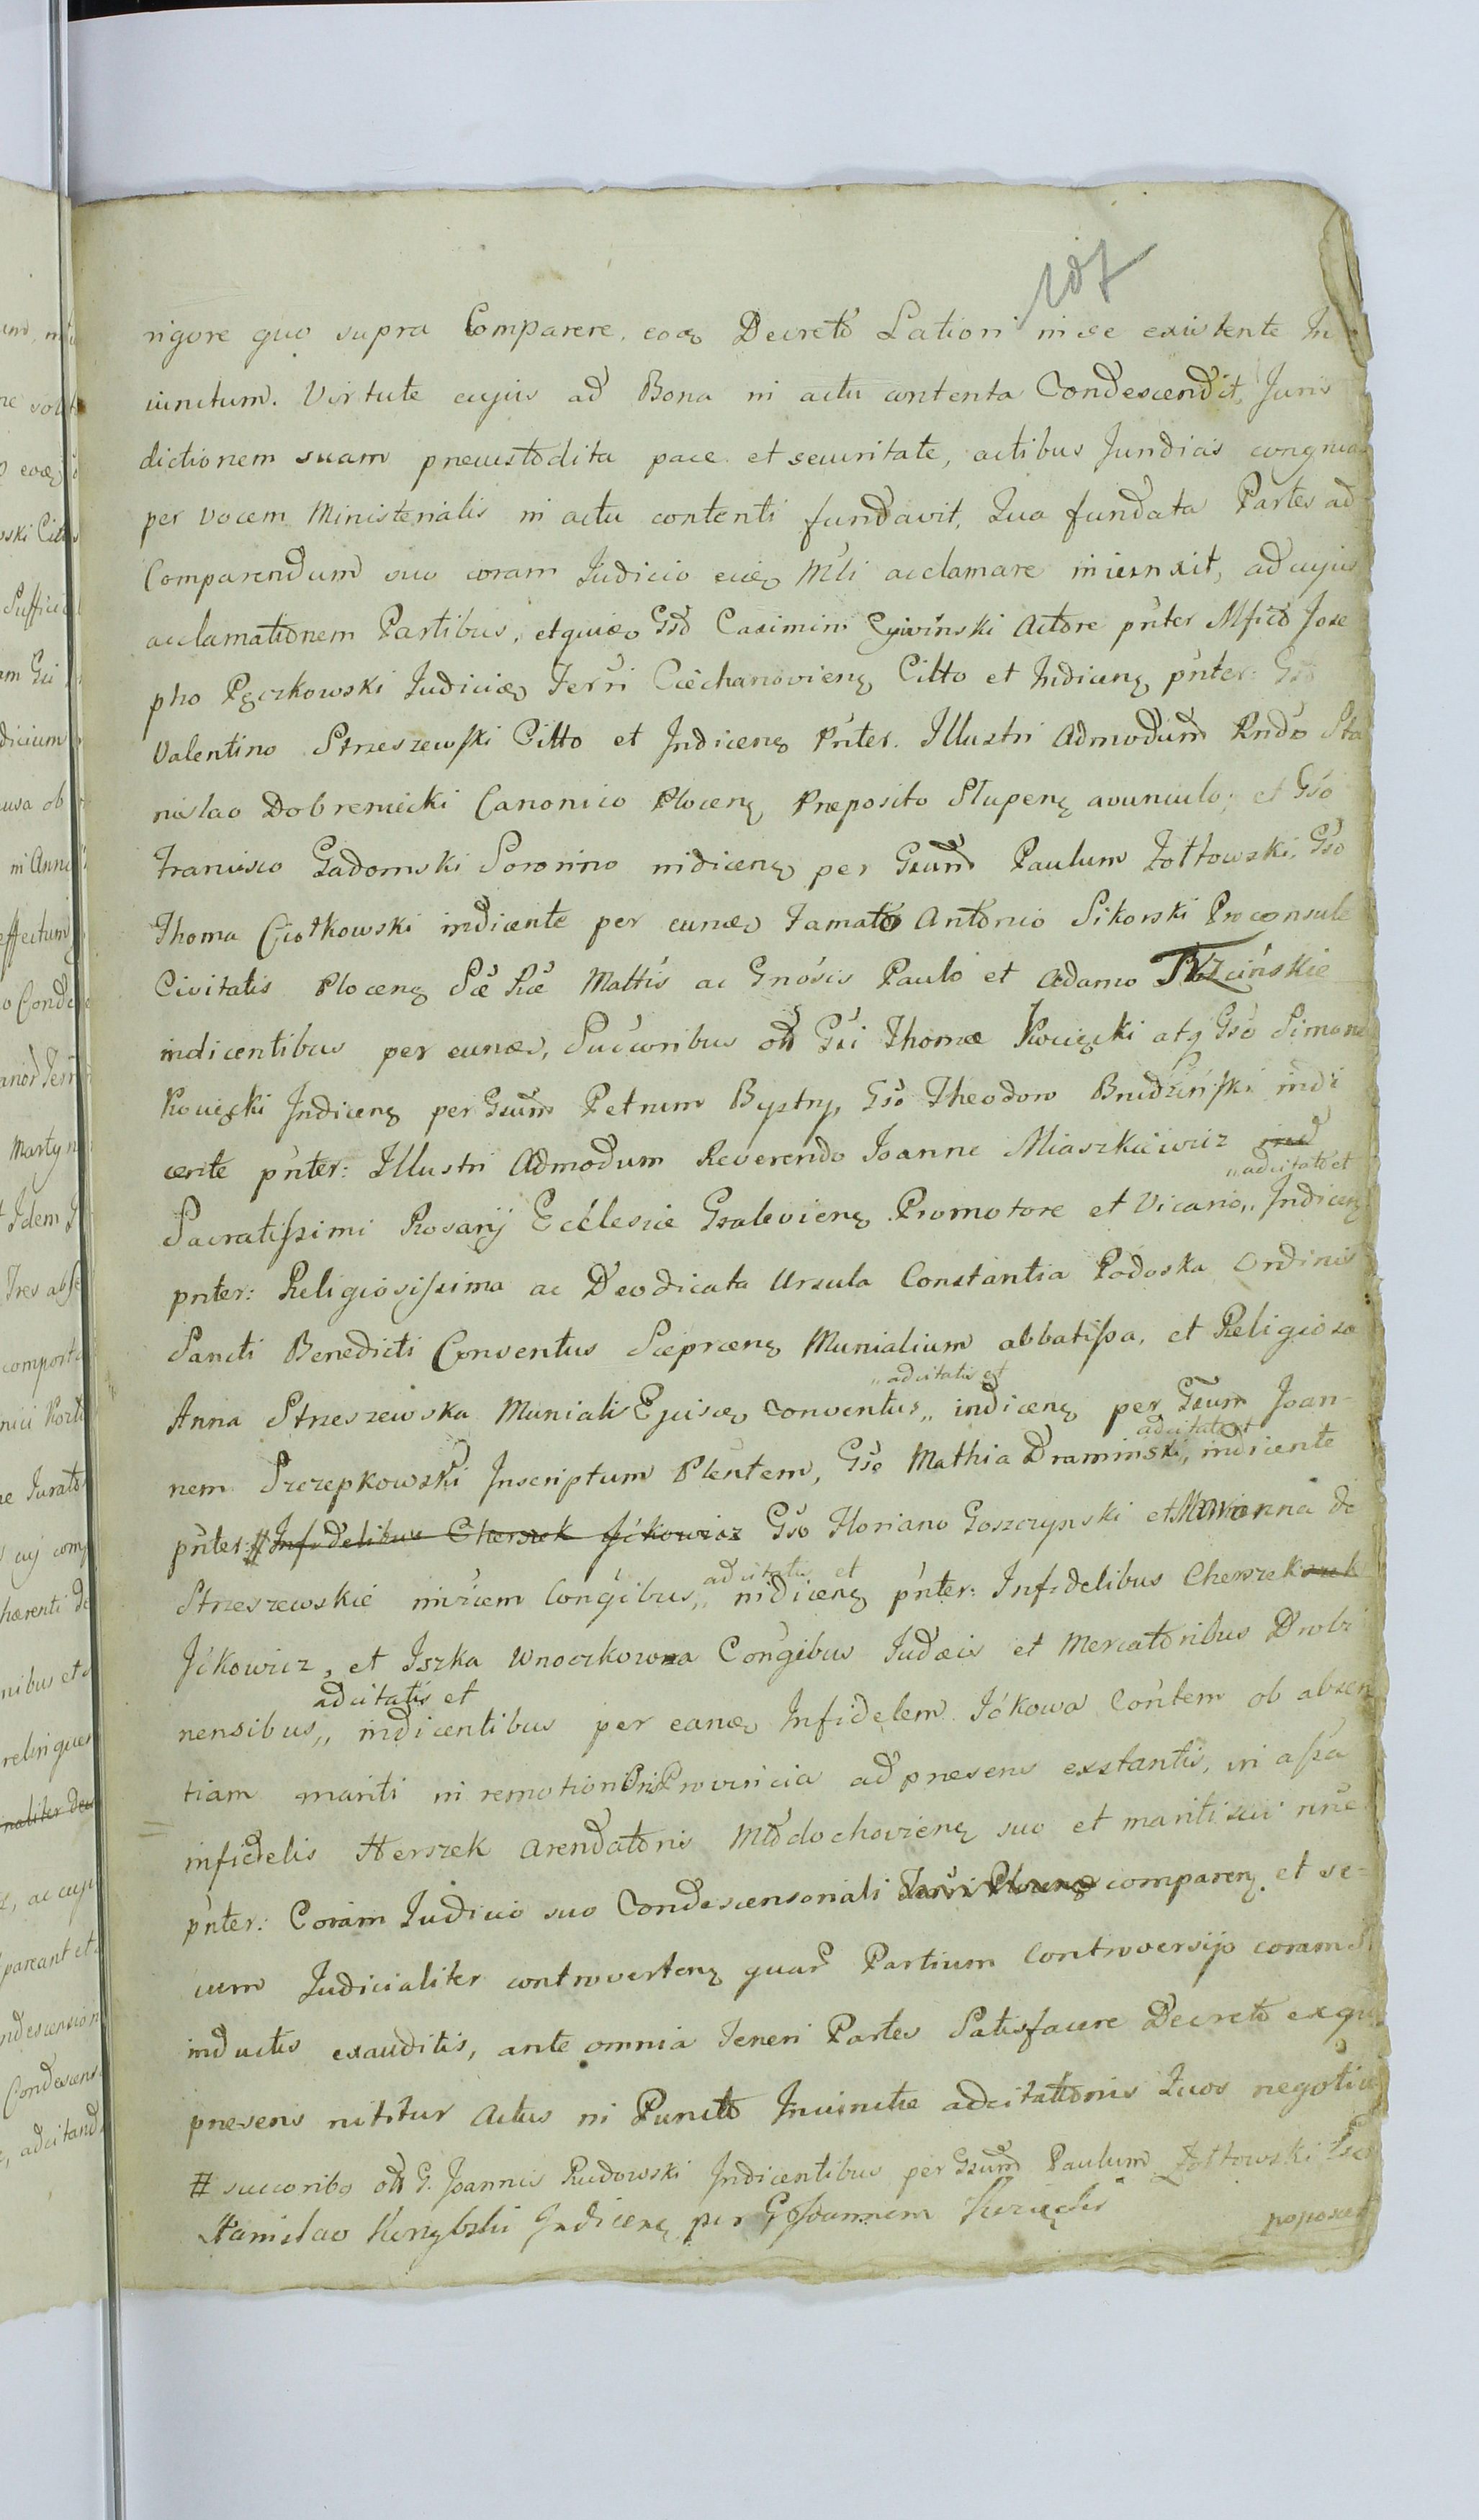 107
rigore quo supra Comparere, eoq Decreto Latiori in se existente In
iunctum. Virtute cujus ad Bona in actu contenta Condescendit, Juris
dictionem suam præcustodita pace et securitate, actibus Juridicis congrua
per vocem Ministerialis in actu contenti fundavit, Qua fundata Partes ad
Comparendum suo coram Judicio eiq Mli acclamare iniunxit, ad cujus
acclamationem Partibus, etquiq Gso Casimiro Cywiński Actore pnter Mfico Jose
pho Pęczkowski Judiciq Terri Ciechanovienę Citto et Indicenę pnter: Gso
Valentino Strzeszewski Citto et Indicenę Pnter. Illustri Admodum Rndo Sta
nislao Dobreniecki Canonico Plocenę Præposito Slupenę avunculo, et Gso
Francisco Gadomski Sororino indicenę per Gsum Paulum Zołtowski, Gso
Thoma Ciołkowski indicente per eunq Famato Antonio Sikorski Proconsule
Civitatis Plocenę Sæ Ræ Mattis ac Gnosis Paulo et Adamo Trzcińskie
indicentibus per eunq, Succoribus olim Gsi Thomæ Kocięcki atq Gso Simone
Kocięcki Indicenę per Gsum Petrum Bystry, Gso Theodoro Brudziński indi
cente pnter: Illustri Admodum Reverendo Joanne Miaszkiewicz ind
„adcitato et
Sacratissimi Rosarij Ecclesiæ Gralevienę Promotore et Vicario,, Indicenę
pnter: Religiosissima ac Deodicata Ursula Constantia Podoska Ordinis
Sancti Benedicti Conventus Sieprcenę Munialium abbatissa, et Religiosa
„adcitatis et
Anna Strzeszewska Muniali Ejusq Conventus,, indicenę per Gsum Joan-
adcitato et
nem Szczepkowski Inscriptum Plentem, Gso Mathia Dramiński,, indicente
pnter: # Infidelibus Cherszek Jckowicz Gso Floriano Goszczynski et Marianna de
adcitatis et
Strzeszewskie invicem Congibus,, indicenę pnter: Infidelibus Cherszek szek
Jckowicz, et Jszka Wnoczkowna Congibus Judæis et Mercatoribus Drobi
adcitatis et
nensibus,, indicentibus per eanq Infidelem Jckowa Contem ob absen
tiam mariti in remotiori Pris Provincia ad præsens exstantis, in assa
infidelis Herszek Arendatoris Młodochovienę suo et mariti sui nne
pnter: Coram Judicio suo Condescensoriali Terri Plocenę comparenę et se-
cum Judicialiter controvertenę quar Partium Controversijs coram se
inductis exauditis, ante omnia Teneri Partes Satisfacere Decreto ex quo
præsens nititur Actus in Puncto Iniunctæ adcitationis Quos negotium
# succoribq olim G. Joannis Rudowski Indicentibus per Gsum Paulum Zołtowski Gso
Stanislao Kęmbski Indicenę per G Joannem
poposcet